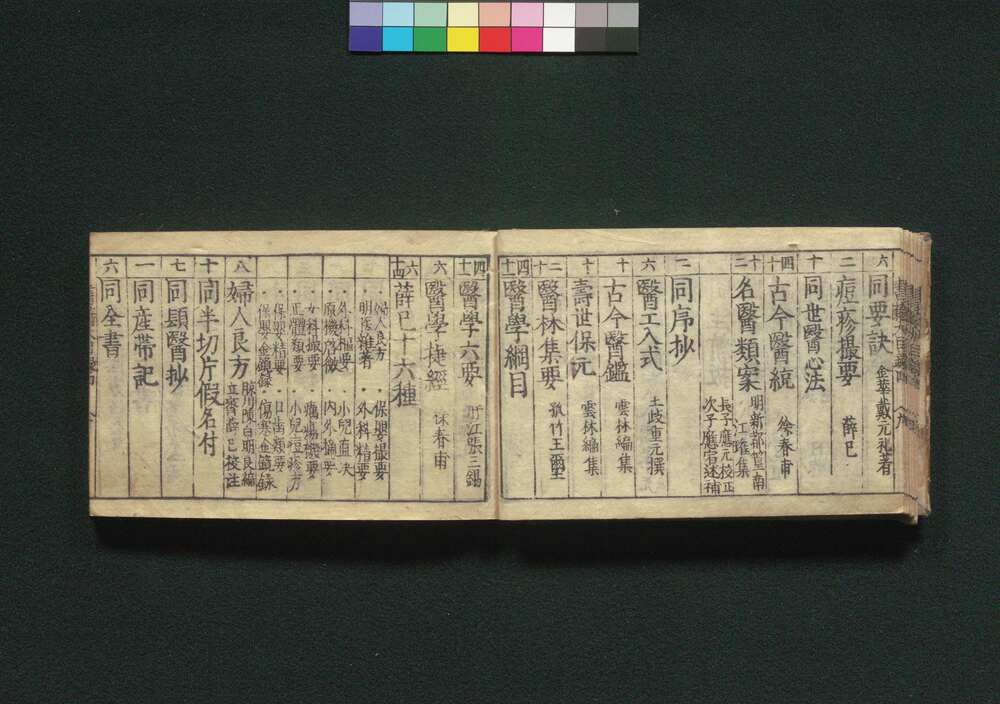 六 同要訣 金華戴元礼著
二 痘疹撮要 薛己
十 同世醫心法
四十 古今醫統 徐春甫
十二 名醫類案 明新都篁南
江瓘集
長子應元校正
次子應宿述補
二 同序抄
六 醫工入式 土岐重元撰
十 古今醫鑑 雲林編集
十 壽世保元 雲林編集
二十 醫林集要 王璽
四十 醫學綱目
四十 醫學六要 張三錫
六 醫學捷經 春甫
六十四 薛己十六種
婦人良方 ・保嬰撮要
明醫雜著 ・外科精要
・外科樞要 ・小兒直决
・原機啓微 ・内外撮要
・女科撮要 ・癘瘍機要
・正體類要 ・小兒痘疹方
・保嬰粹要 ・口齒類要
・保嬰金鏡録 ・傷寒金鏡録
八 婦人良方 臨川陳自明良編
立齋薛己校註
十 同半切片假名付
七 同頭醫抄
一 同産帯記
六 同全書